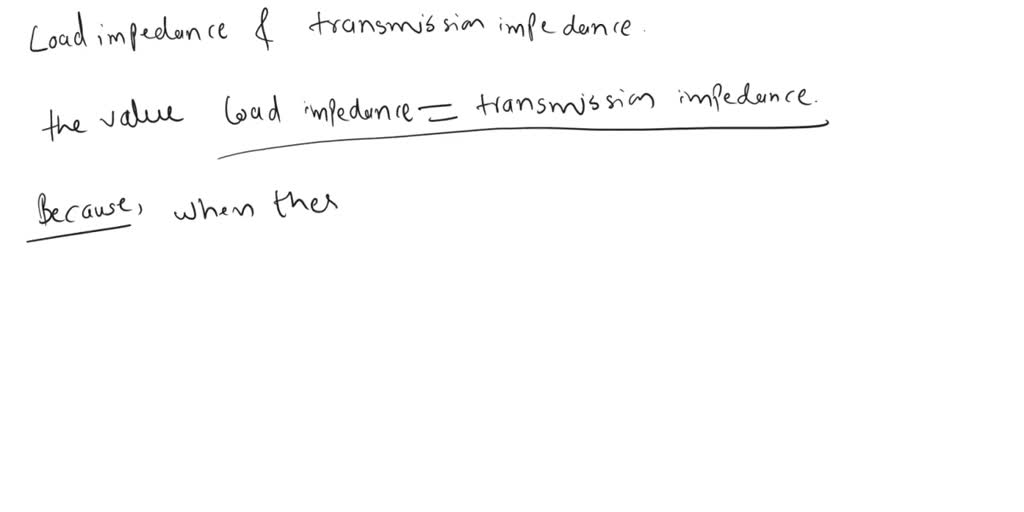 Load impedance & transmission impedance.
the value load impedance = transmission impedance.
Because, when ther